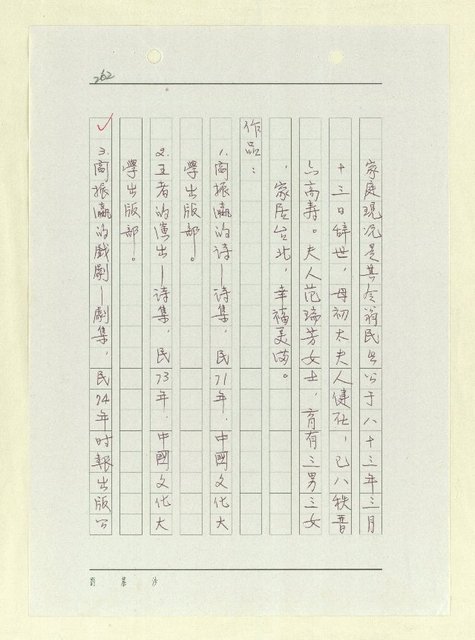 262
家庭現況是其令翁民公于八十三年三月
十三日辭世，母初太夫人健在，已八秩晉
六高壽。夫人范瑞芳女士，育有三男三女
，家居台北，幸福美滿。
作品：
1.高振瀛的詩—詩集，民71年，中國文化大
學出版部。
2.王者的演出—詩集，民73年，中國文化大
學出版部。
3.高振瀛的戲劇—劇集，民74年時報出版公
劉慕沙